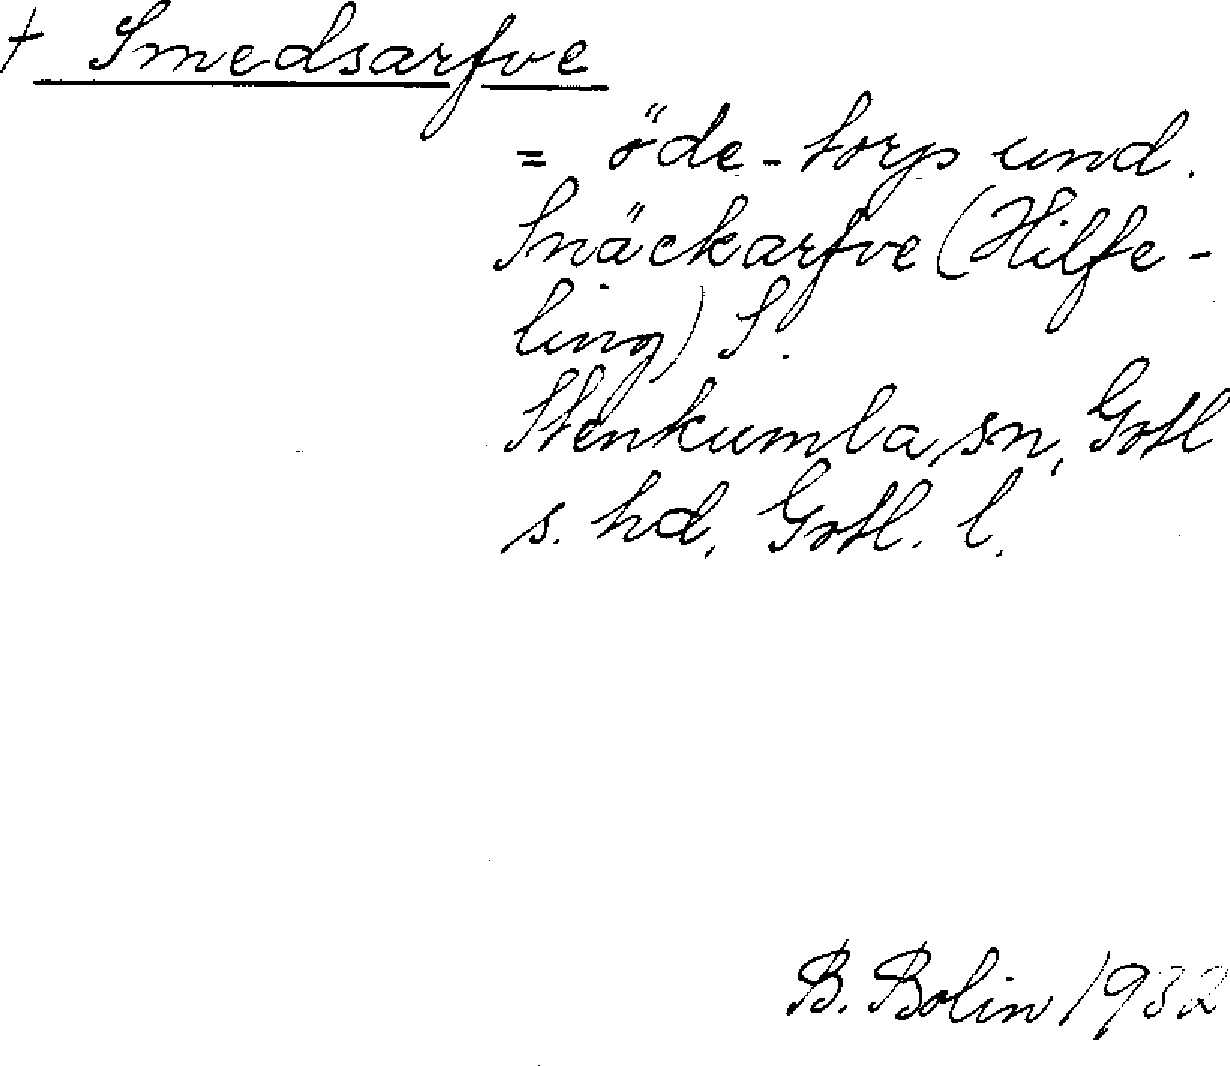 † Smedsarfve
= öde-torp und.
Snäckarfve (Hilfe-
ling) S.
Stenkumla sn, Gotl
s. hd, Gotl. l.
B. Bolin 1932